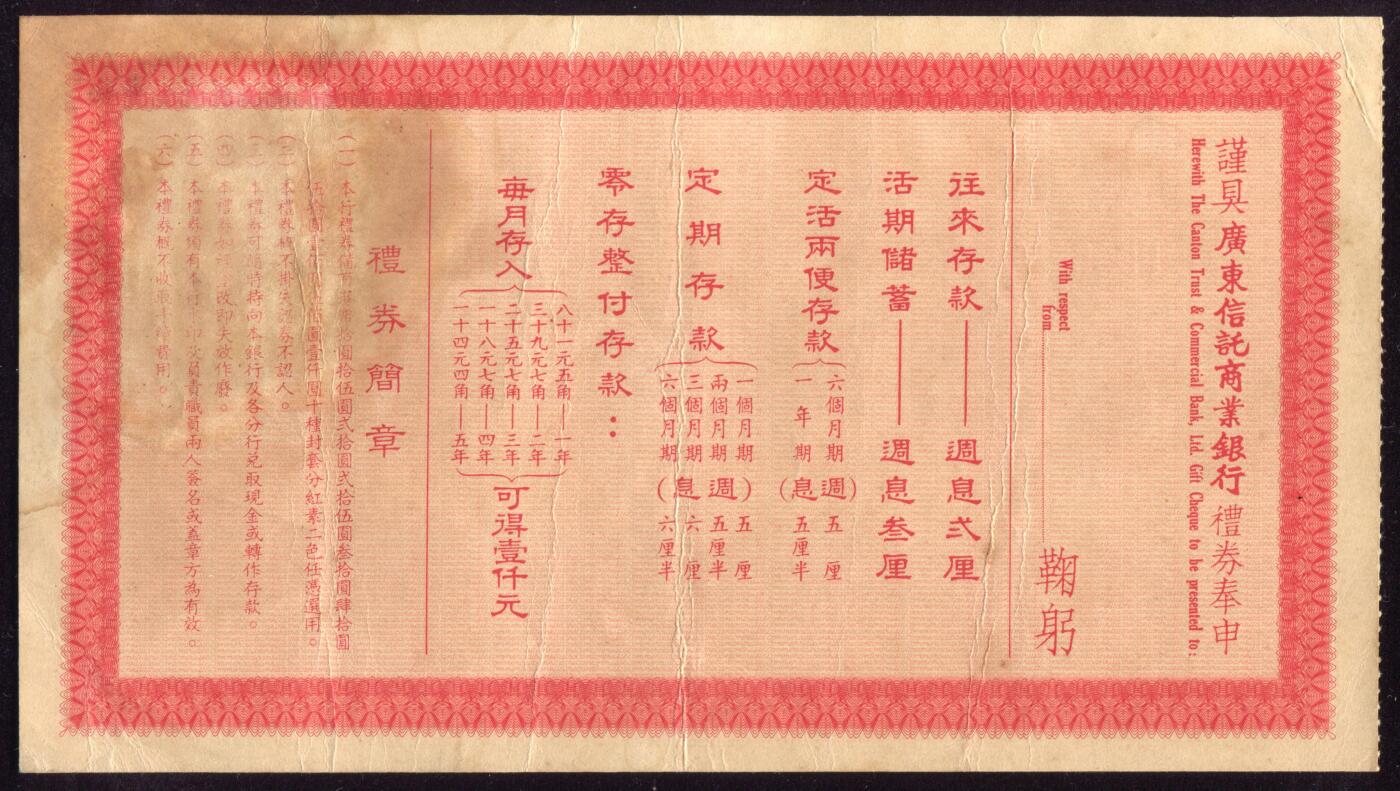 謹具廣東信託商業銀行禮券奉申
Herewith The Canton Trust & Commercial Bank, Ltd. Gift Cheque to be presented to:
With respect
from
鞠躬
往來存款——週息弍厘
活期儲蓄——週息叁厘
定活兩便存款
六個月期(週息)五厘
一年期(週息)五厘半
定期存款
一個月期(週息)五厘
兩個月期(週息)五厘半
三個月期(週息)六厘
六個月期(週息)六厘半
零存整付存款：
每月存入
八十一元五角——一年
三十九元七角——二年
二十五元七角——三年
一十八元七角——四年
一十四元四角——五年
可得壹仟元
禮券簡章
(一) 本行禮券備有 拾圓拾伍圓弍拾圓弍拾伍圓叁拾圓肆拾圓
伍拾圓壹佰圓 佰圓壹仟圓十種封套分紅素二色任憑選用。
(二) 本禮券概不掛失認券不認人。
(三) 本禮券可隨時持向本銀行及各分行兌取現金或轉作存款。
(四) 本禮券如經塗改即失效作廢。
(五) 本禮券須有本行 印及負責職員兩人簽名或蓋章方為有效。
(六) 本禮券概不收取手續費用。